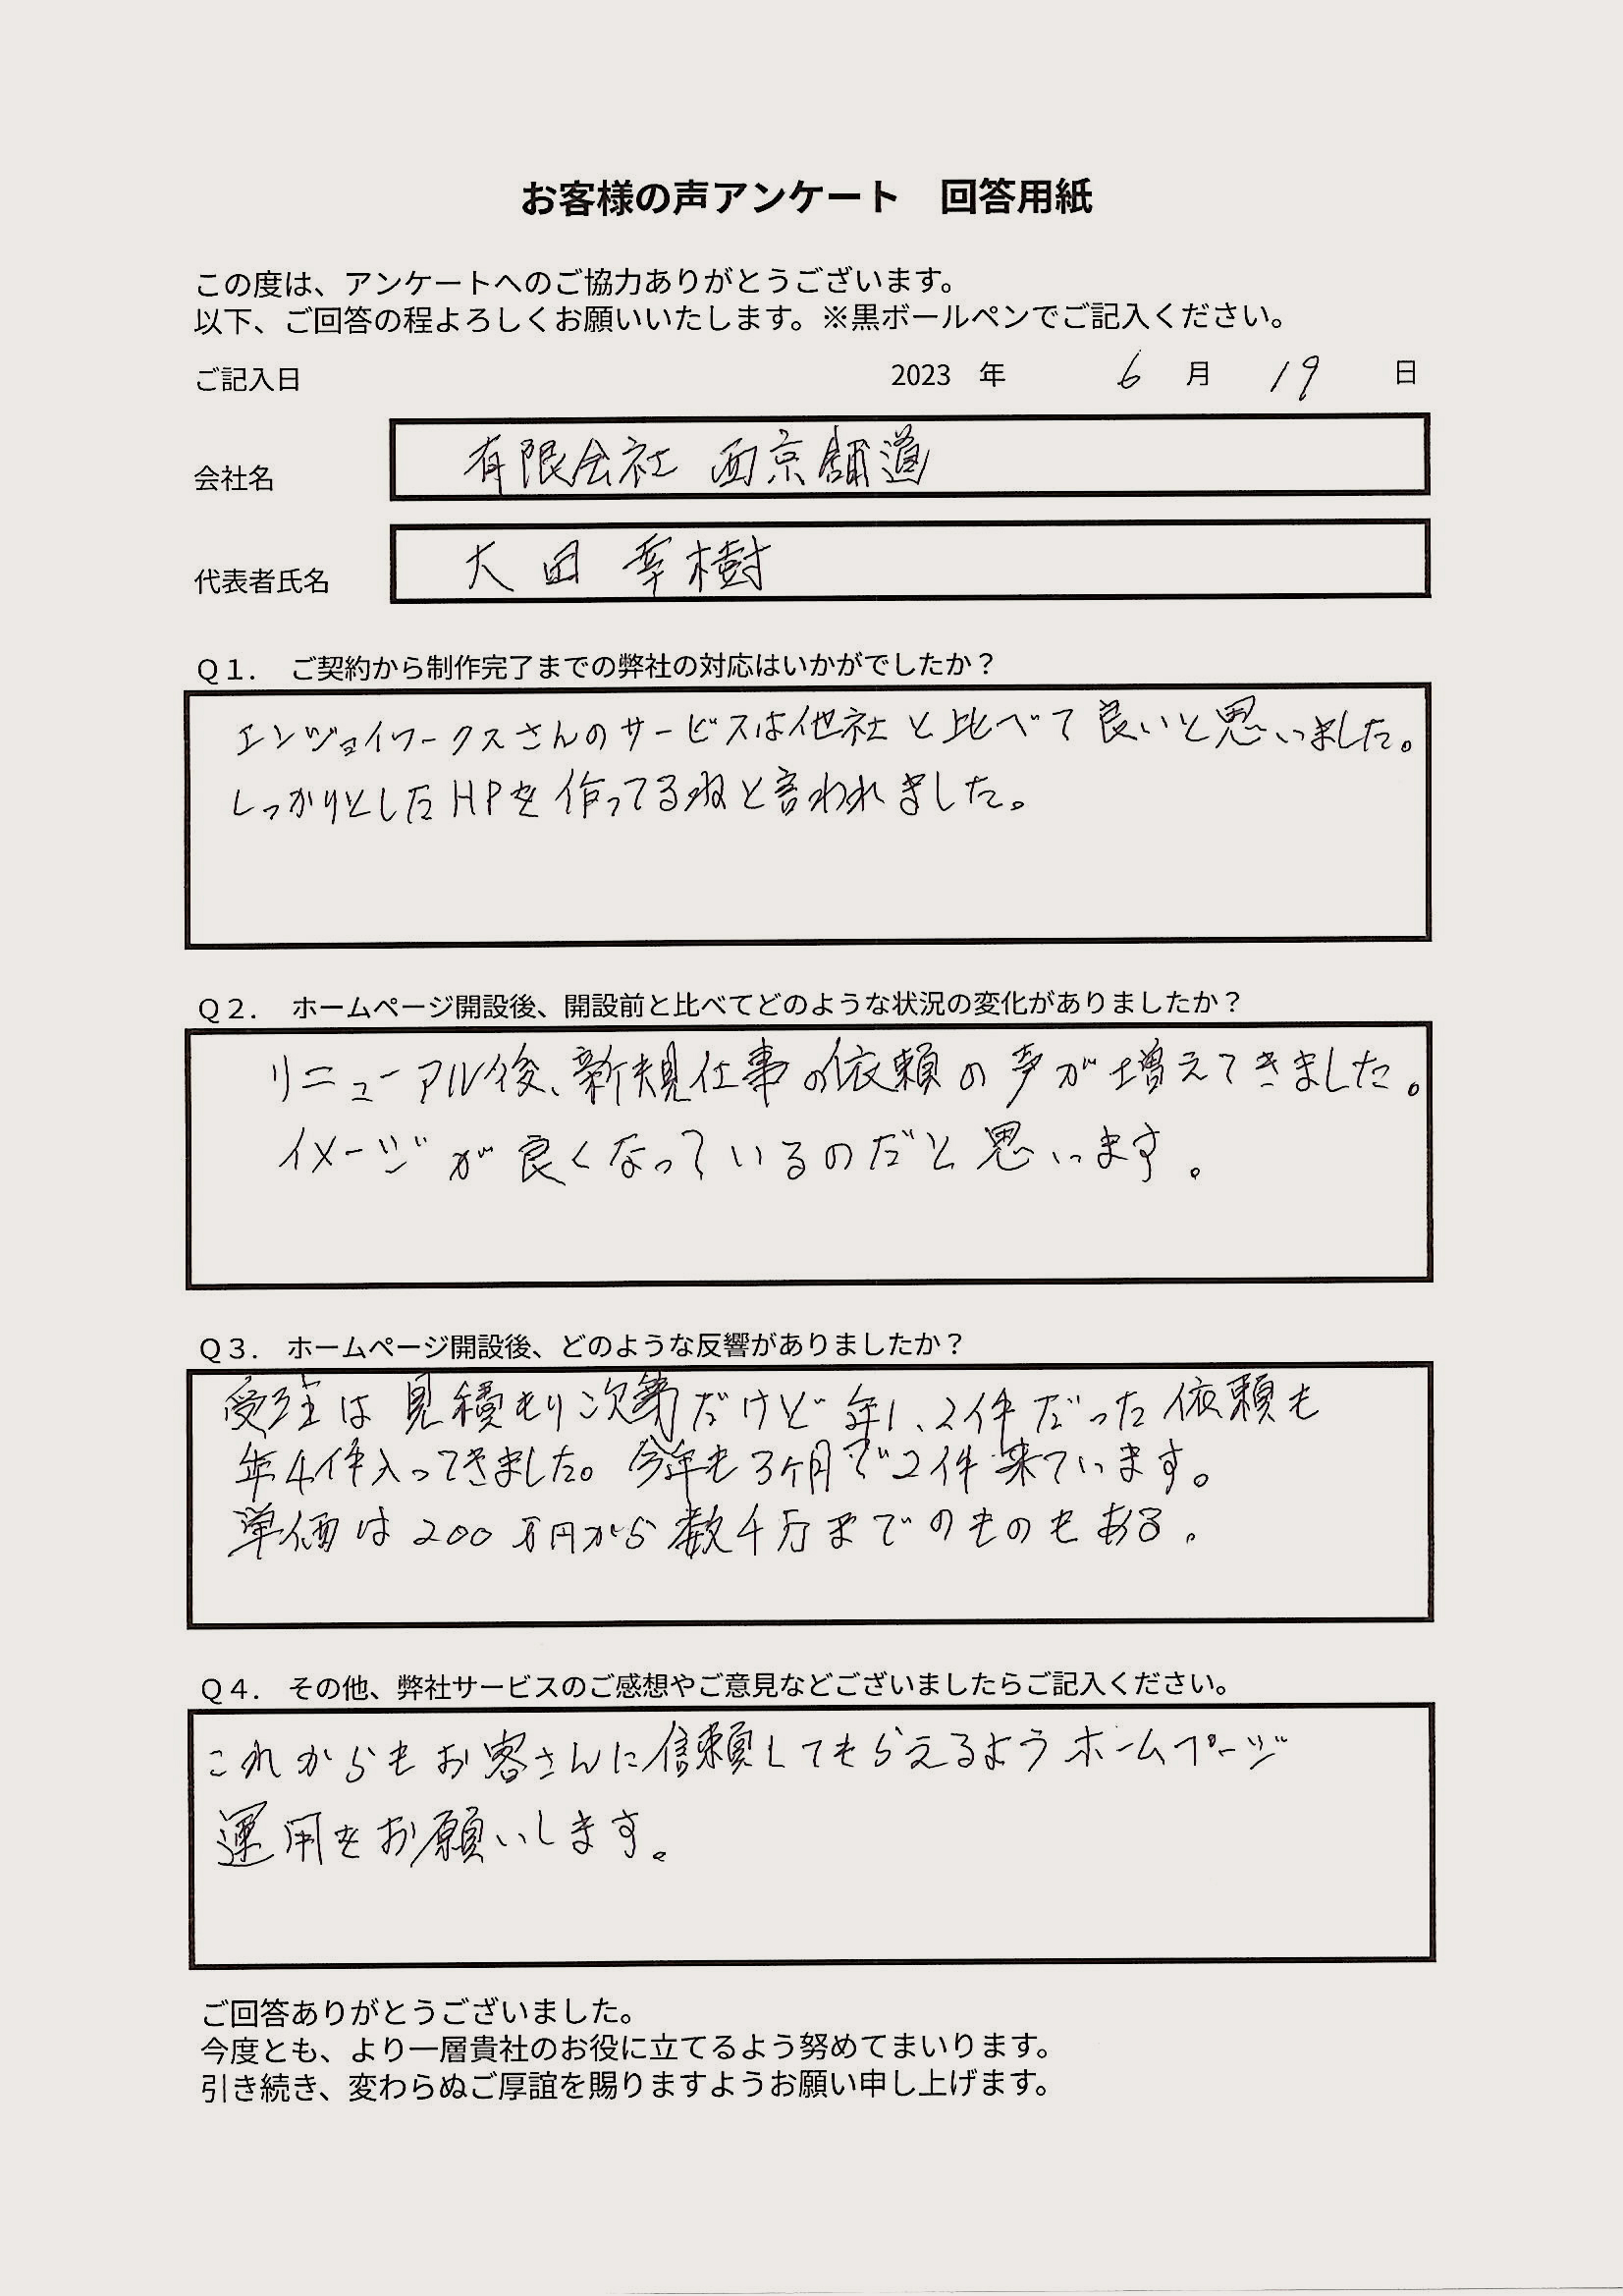 お客様の声アンケート　回答用紙
この度は、アンケートへのご協力ありがとうございます。
以下、ご回答の程よろしくお願いいたします。※黒ボールペンでご記入ください。
ご記入日　2023　年　6　月　19　日
会社名　有限会社 西京舗道
代表者氏名　大田 幸樹
Q１.　ご契約から制作完了までの弊社の対応はいかがでしたか？
エンジョイワークスさんのサービスは他社と比べて良いと思いました。
しっかりとしたHPを作ってるねと言われました。
Q２.　ホームページ開設後、開設前と比べてどのような状況の変化がありましたか？
リニューアル後、新規仕事の依頼の声が増えてきました。
イメージが良くなっているのだと思います。
Q３.　ホームページ開設後、どのような反響がありましたか？
受注は見積もり次第だけど年1、2件だった依頼も
年4件入ってきました。今年も3ヶ月で2件来ています。
単価は200万円から数千万までのものもある。
Q４.　その他、弊社サービスのご感想やご意見などございましたらご記入ください。
これからもお客さんに信頼してもらえるようホームページ
運用をお願いします。
ご回答ありがとうございました。
今度とも、より一層貴社のお役に立てるよう努めてまいります。
引き続き、変わらぬご厚誼を賜りますようお願い申し上げます。